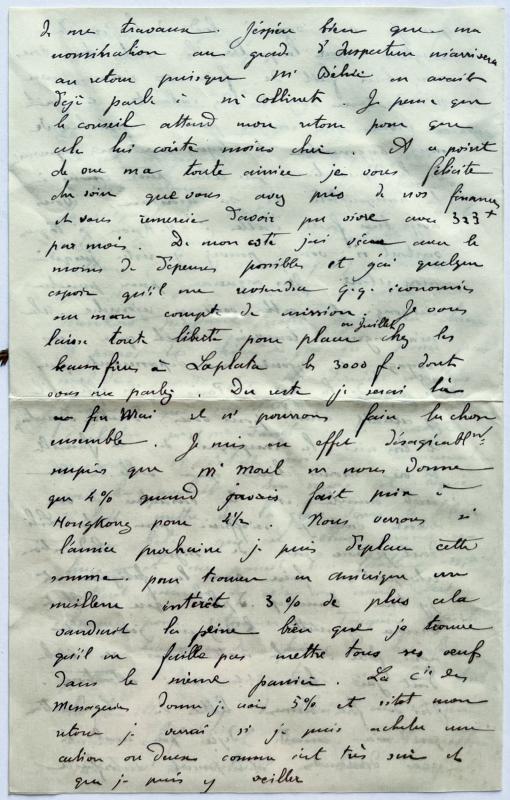 de mes travaux. J'espère bien que ma
nomination au grade d'Inspecteur m'arrivera
au retour puisque Mr en avait
déjà parlé à Mr Collinet. Je pense que
le conseil attend mon retour pour que
cela lui coûte moins cher. A ce point
de vue ma toute aimée je vous félicite
du soin que vous avez pris de nos finances
et vous remercie d'avoir pu vivre avec 323
par mois. De mon coté j'ai vécu avec le
moins de dépenses possibles et j'ai quelque
espoir qu'il me reviendra q.q. économies
sur mon compte de mission. Je vous
laisse toute liberté pour placer en Juillet chez les
beaux frères à Laplata les 3000 f. dont
vous me parlez. Du reste je serai là
en fin Mai et ns pourrons faire la chose
ensemble. Je suis en effet désagréablnt
surpris que Mr Morel ne nous donne
que 4% quand j'avais fait prix à
Hongkong pour 4½. Nous verrons si
l'année prochaine je puis déplacer cette
somme pour trouver en Amérique un
meilleur intérêt. 3% de plus cela
vaudrait la peine bien que je trouve
qu'il ne faille pas mettre tous ses oeufs
dans le même panier. La Cie des
Messageries donne je crois 5% et sitot mon
retour je verrai si je puis acheter une
action ou deux comme c'est très sûr et
que je puis y veiller